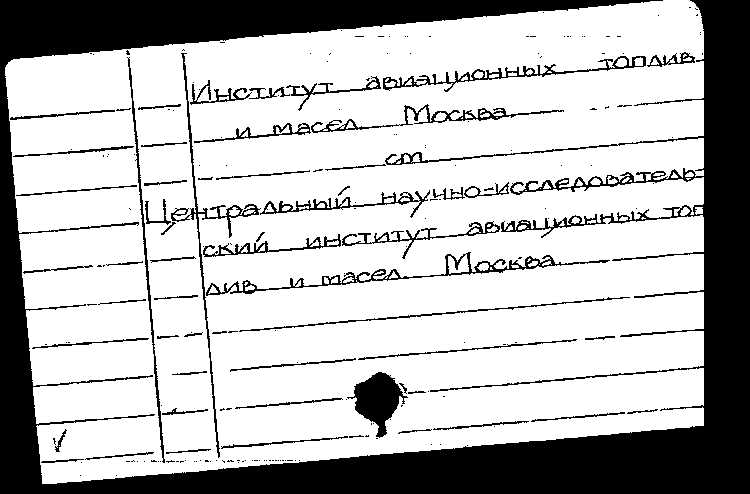 Институт авиационных топлив
и масел. Москва.
см.
Центральный научно-исследователь-
ский институт авиационных топ
лив и масел. Москва.